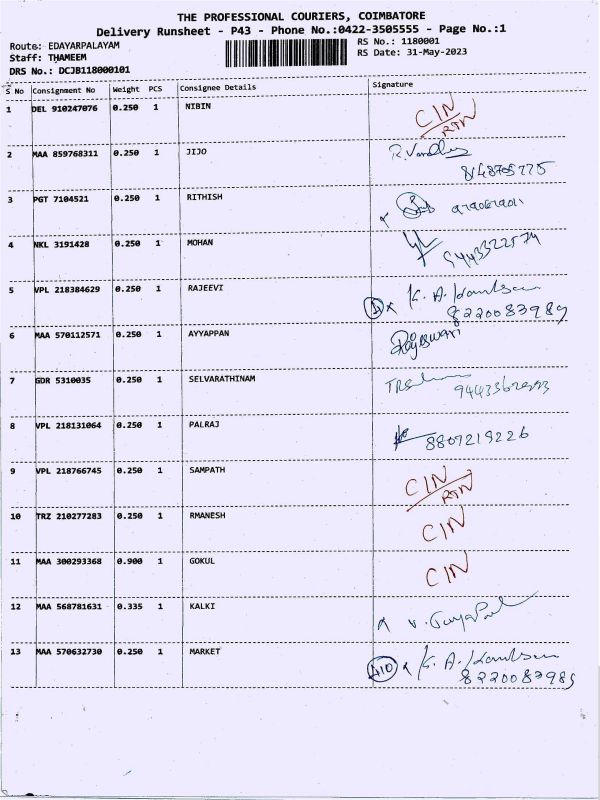 THE PROFESSIONAL COURIERS, COIMBATORE
Delivery Runsheet - P43 - Phone No.:0422-3505555 - Page No.:1
Route: EDAYARPALAYAM RS No.: 1180001
Staff: THAMEEM RS Date: 31-May-2023
DRS No.: DCJB118000101
S No Consignment No Weight PCS Consignee Details Signature
1 DEL 910247076 0.250 1 NIBIN CIN
RTN
2 MAA 859768311 0.250 1 JIJO
3 PGT 7104521 0.250 1 RITHISH
4 NKL 3191428 0.250 1 MOHAN 9443322574
5 VPL 218384629 0.250 1 RAJEEVI
8220083989
6 MAA 570112571 0.250 1 AYYAPPAN
7 GDR 5310035 0.250 1 SELVARATHINAM
8 VPL 218131064 0.250 1 PALRAJ 8807219226
9 VPL 218766745 0.250 1 SAMPATH CIN
RTN
10 TRZ 210277283 0.250 1 RMANESH CIN
11 MAA 300293368 0.900 1 GOKUL CIN
12 MAA 568781631 0.335 1 KALKI
13 MAA 570632730 0.250 1 MARKET
8220083989